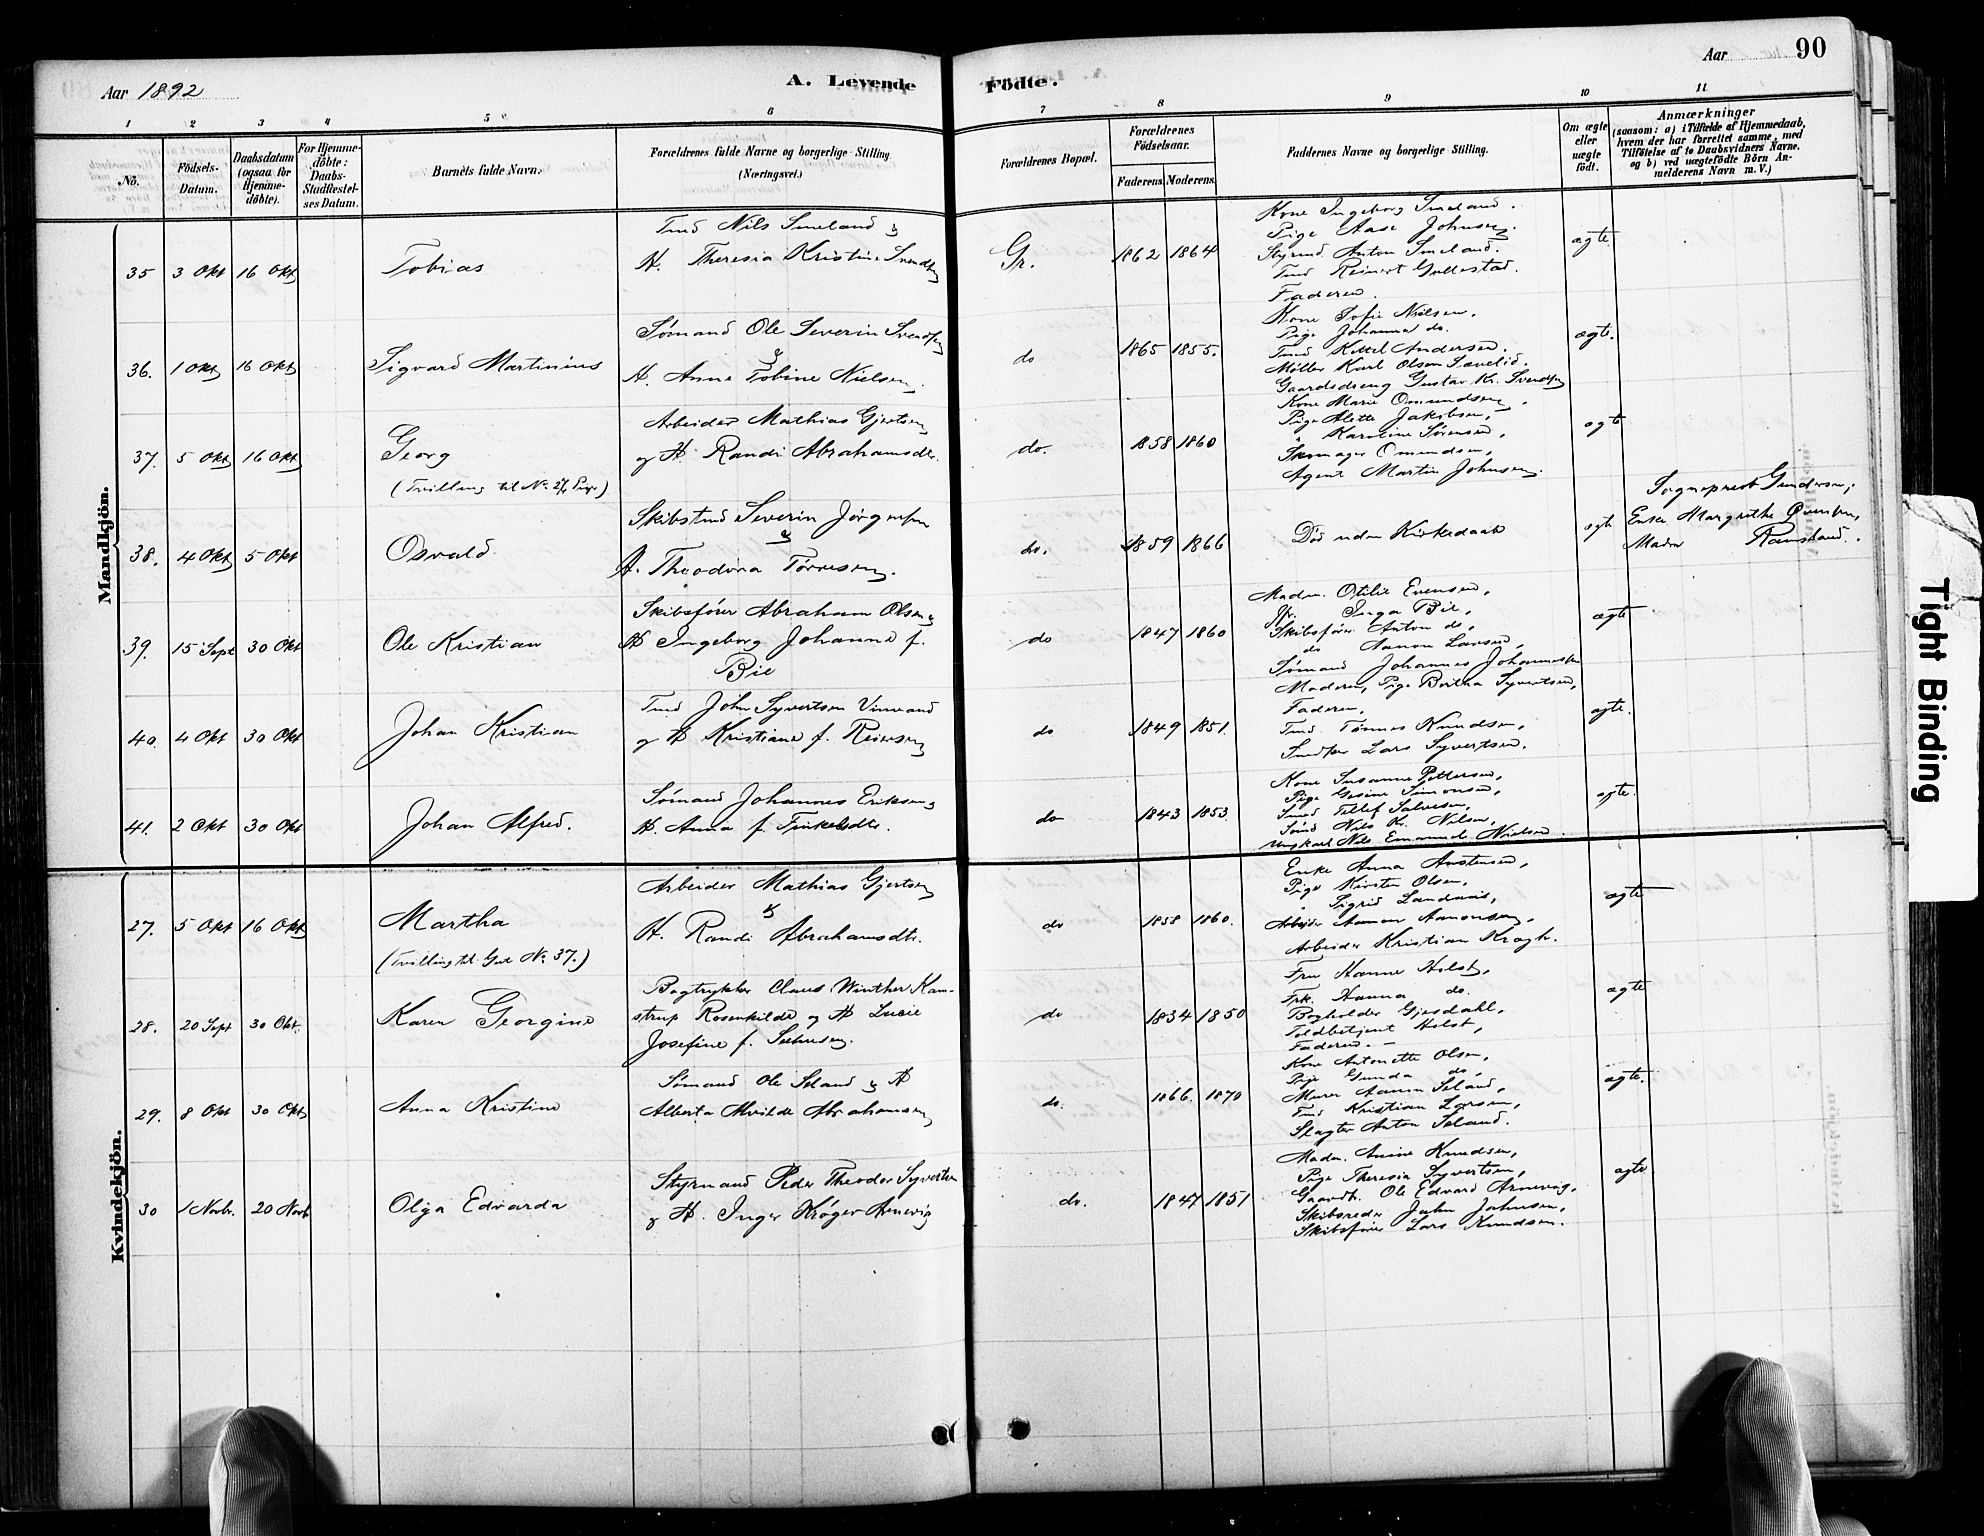 Aar 1892
A. Levende
Födte.
Aar
90
1 2 3 4 5 6 7 8 9 10 11
No.
Födsels-Datum.
Daabsdatum (ogsaa for Hjemme-døbte).
For Hjemme-døbte: Daabs-Stadfæstel-ses Datum.
Barnets fulde Navn.
Forældrenes fulde Navne og borgerlige Stilling (Næringsvei.)
Forældrenes Bopæl.
Forældrenes Fødselsaar.
Faderens. Moderens.
Faddernes Navne og borgerlige Stilling.
Om ægte eller uægte født.
Anmærkninger
(saasom: a) i Tilfælde af Hjemmedaab, hvem der har forrettet samme, med Tilføielse af to Daabsvidners Navne. og b) ved uægtefødte Børn An-melderens Navn m. V.)
Mandkjön.
35 3 Okt 16 Okt
Tobias
Tmd Nils Smeland &
H. Theresia Kristine Svendsen
Gr.
1862 1864
Kone Ingeborg Smeland.
Pige Aase Johnsen.
Styrmd Anton Smeland.
Tmd Reinert Gullestad.
Faderen.
ægte
36. 1 Okt 16 Okt
Sigvard Martinius
Sømand Ole Severin Svendsen
&
H. Anne Tobine Nielsen.
do
1865 1855.
Kone Sofie Nielsen,
Pige Johanna do.
Tmd Kittel Andersen.
Møller Karl Olsen
Gaardsdreng Gustav Kr. Svendsen
ægte.
37. 5 Okt 16 Okt
Georg
(Tvilling til No. 27 Pige)
Arbeider Mathias Gjertsen
og H Randi Abrahamsdtr.
do.
1858 1860
Kone Marie Omundsen,
Pige Alette Jakobsen,
" Karoline Sørensen,
Skomager Omundsen,
Agent Martin Johnsen.
ægte
38. 4 Okt 5 Okt
Osvald
Skibstmd Severin Jørgensen
&
H. Theodora Tørresen.
do.
1859 1866
Død uden Kirkedaab
ægte
Sogneprest Gundersen;
Enke Margrethe
Madm
39. 15 Sept 30 Okt
Ole Kristian
Skibsfører Abraham Olsen &
H Ingeborg Johanne f.
Bie
do
1847 1860
Madm. Otilie Evensen,
Inga Bie,
Skibsfører Anton do,
do Aanon Larsen,
Sømand Johannes Johannessen
ægte
40. 4 Okt 30 Okt
Johan Kristian
Tmd John Syvertsen Vinvand
og H Kristiane f. Reiersen
do
1849 1851.
Moderen, Pige Bertha Syvertsen,
Faderen,
Tmd. Tønnes Knudsen,
Lars Syvertsen.
ægte.
41. 2 Okt 30 Okt
Johan Alfred.
Sømand Johannes Eriksen &
H. Anna f.
do
1843 1853
Kone Susanne Pettersen,
Pige Gesine Simonsen,
Smed Tellef Salvesen,
Sømd Nils Kr. Nilsen,
Ungkarl Nils Emanuel Nielsen.
ægte.
Kvindekjön.
27. 5 Okt 16 Okt
Martha
(Tvilling til Gut No. 37.)
Arbeider Mathias Gjertsen
&
H. Randi Abrahamsdtr.
do
1858 1860.
Enke Anna Austensen,
Pige Kirsten Olsen,
" Sigrid Landaas,
Arbeider Aanon Aanonsen,
Arbeider Kristian Krogh.
ægte
28. 20 Sept 30 Okt.
Karen Georgine
Bogtrykker Claus Winther Kam-
strup Rosenkilde og H Lucie
Josefine f. Seehusen.
do
1834 1850
Fru Hanne Holst,
Frk. Hanna do.
Bogholder Gjesdahl,
Toldbetjent Holst,
Faderen.
ægte
29. 8 Okt 30 Okt
Anna Kristine
Sømand Ole Seland & H
Alberta Alvilde Abrahamsen
do.
1866. 1870
Kone Antonette Olsen,
Pige Gunda do,
Murer Aanon Seland,
Tmd Kristian Larsen,
Slagter Anton Seland.
ægte.
30 1 Novb. 20 Novb
Olga Edvarda
Styrmand Peder Theodor Syvertsen
& H. Inger Krøger Arnevig
do.
1847 1851
Madm. Anine Knudsen,
Pige Theresia Syvertsen,
Gaardb. Ole Edvard Arnevig,
Skibsreder John Johnsen,
Skibsfører Lars Knudsen.
ægte
Tight Binding